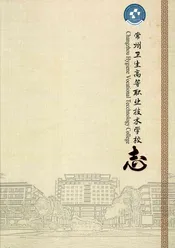 常州卫生高等职业技术学校
Changzhou Hygiene Vocational Technology College
志